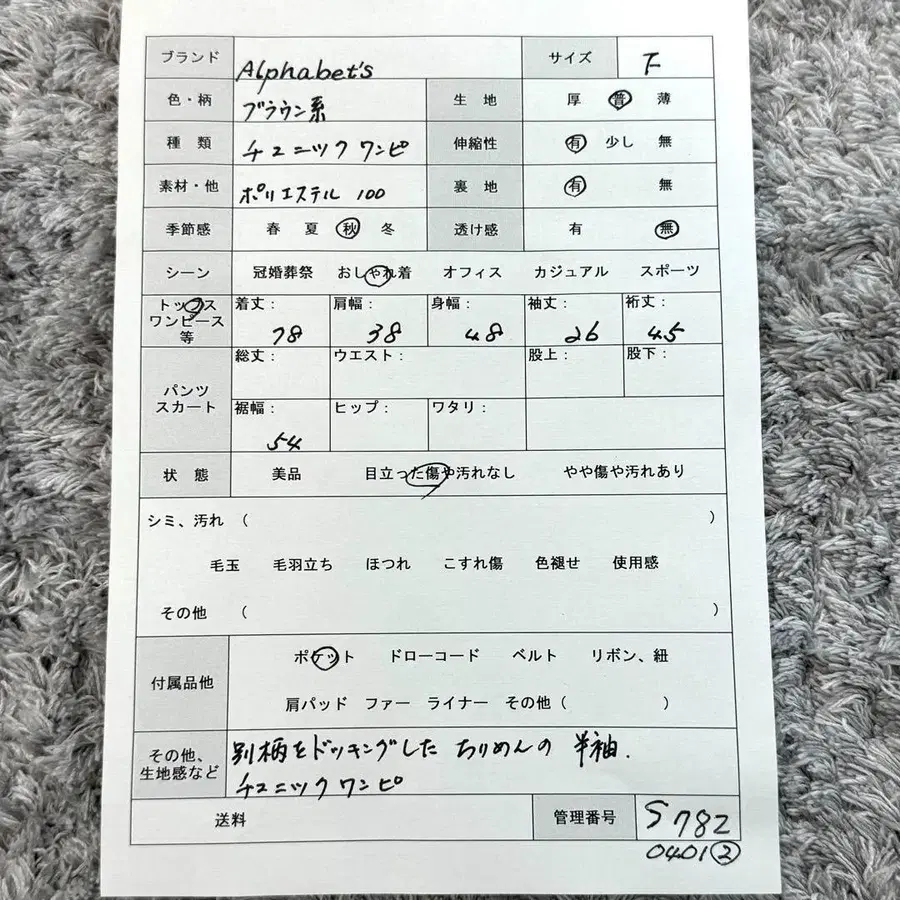 ブランド Alphabet's サイズ F
色・柄 ブラウン系 生地 厚 普 薄
種類 チュニックワンピ 伸縮性 有 少し 無
素材・他 ポリエステル 100 裏地 有 無
季節感 春 夏 秋 冬 透け感 有 無
シーン 冠婚葬祭 おしゃれ着 オフィス カジュアル スポーツ
トップス
ワンピース
等
着丈: 78 肩幅: 38 身幅: 48 袖丈: 26 裄丈: 45
パンツ
スカート
総丈: ウエスト: 股上: 股下:
裾幅: 54 ヒップ: ワタリ:
状態 美品 目立った傷や汚れなし やや傷や汚れあり
シミ、汚れ ( )
毛玉 毛羽立ち ほつれ こすれ傷 色褪せ 使用感
その他 ( )
付属品他 ポケット ドローコード ベルト リボン、紐
肩パッド ファー ライナー その他( )
その他、
生地感など
別柄をドッキングした ちりめんの 半袖.
チュニックワンピ
送料 管理番号 S782
0401②